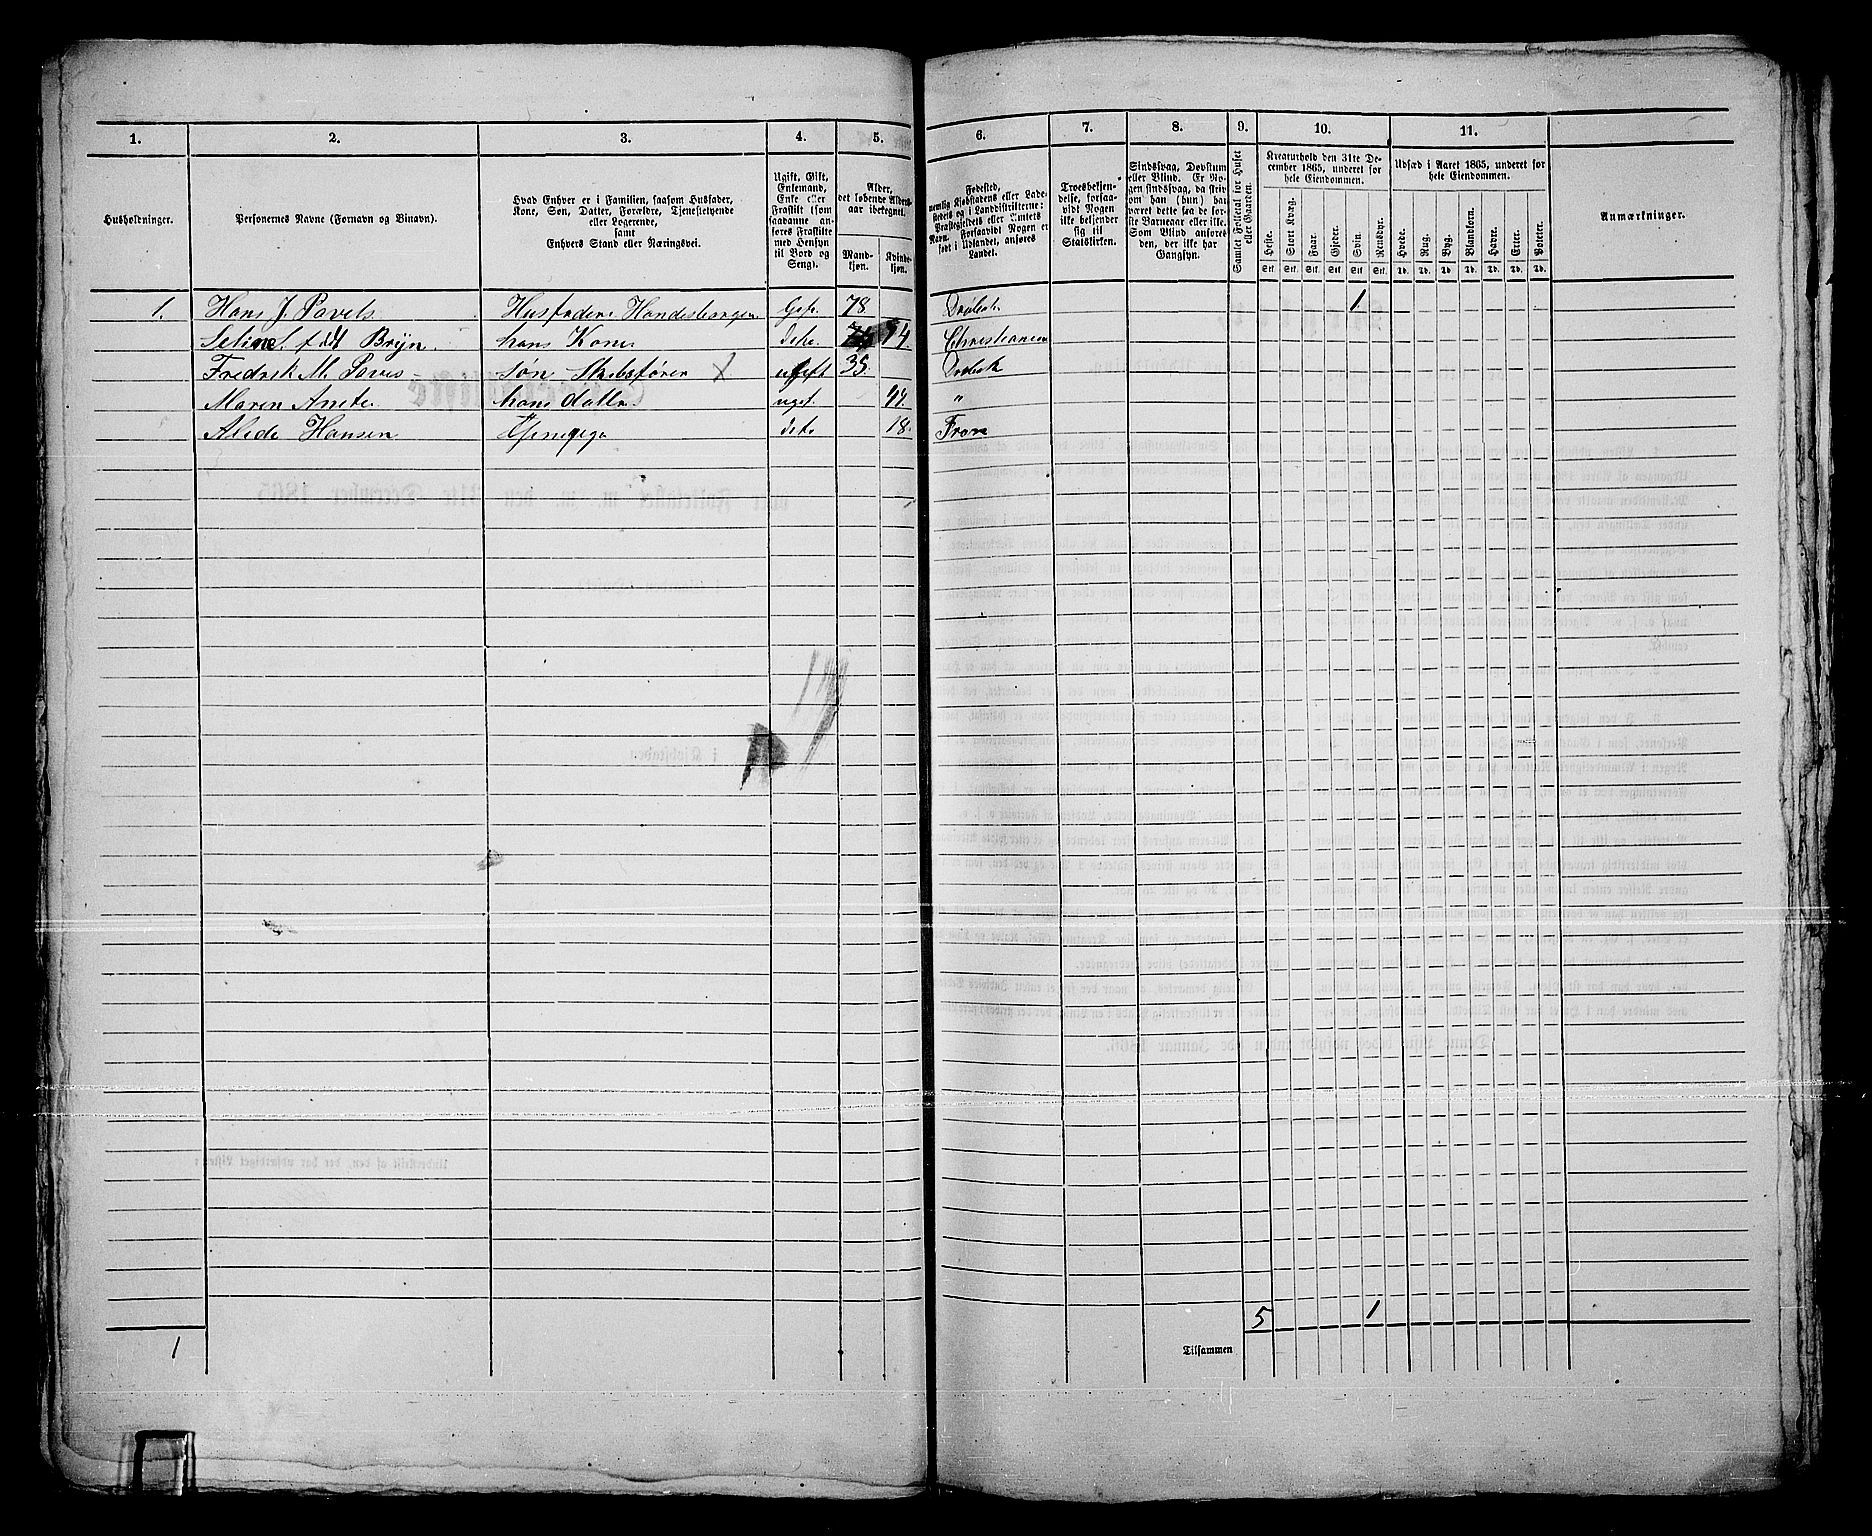 1. 2. 3. 4. 5. 6. 7. 8. 9. 10. 11.
Husholdninger.
Personernes Navne (Fornavn og Binavn).
Hvad Enhver er i Familien, saasom Husfader,
Kone, Søn, Datter, Forældre, Tjenestetyende
eller Logerende,
samt
Enhvers Stand eller Næringsvei.
Ugift, Gift,
Enkemand,
Enke eller
Fraskilt (som
saadanne an-
føres Fraskilte
med Hensyn
til Bord og
Seng).
Alder,
det løbende Alders-
aar iberegnet.
Mand-
kjøn.
Kvinde-
kjøn.
Fødested,
nemlig Kjøbstadens eller Lade-
stedets og i Landdistrikterne:
Præstegjeldets eller Amtets
Navn. Forsaavidt Nogen er
født i Udlandet, anføres
Landet.
Troesbekjen-
delse, forsaa-
vidt Nogen
ikke bekjender
sig til
Statskirken.
Sindssvag, Døvstum
eller Blind. Er No-
gen sindssvag, da skri-
ves, om han (hun) har
været dette fra de før-
ste Barneaar eller ikke.
Som Blind anføres
den, der ikke har
Gangsyn.
Samlet Folketal for Huset
eller Gaarden.
Kreaturhold den 31te De-
cember 1865, underet for
hele Eiendommen.
Heste. Stort Kvæg. Faar. Gjeder. Svin. Rensdyr.
Stk. Stk. Stk. Stk. Stk. Stk.
Udsæd i Aaret 1865, underet for
hele Eiendommen.
Hvede. Rug. Byg. Blandkorn. Havre. Erter. Poteter.
Td. Td. Td. Td. Td. Td. Td.
Anmærkninger.
1. Hans J. Pavels Husfader Gift 78. Drøbak 1
født Bryn hans Kone 74. Christiania
Fredrik M. Pavels søn Skibsfører ugift 35. Drøbak
Maren Anete hans datter ugt. 44. "
Alide Hansen 18. Fron
5 1
1 Tilsammen